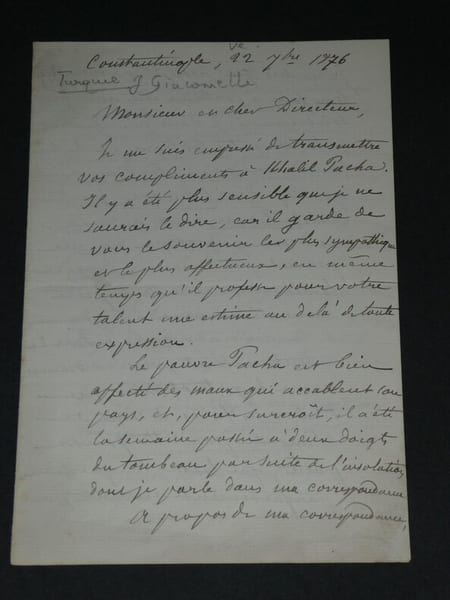 Ve
Constantinople, 22 7bre 1876
Turquie J Giacometti
Monsieur et cher Directeur,
Je me suis empressé de transmettre
vos compliments à Khalil Pacha.
Il y a été plus sensible que je ne
saurais le dire, car il garde de
vous le souvenir le plus sympathique
et le plus affectueux, en même
temps qu'il professe pour votre
talent une estime au delà de toute
expression.
Le pauvre Pacha est bien
affecté des maux qui accablent son
pays, et, pour surcroît, il a été
la semaine passée à deux doigts
du tombeau par suite de l'insolation
dont je parle dans ma correspondance
A propos de ma correspondance,